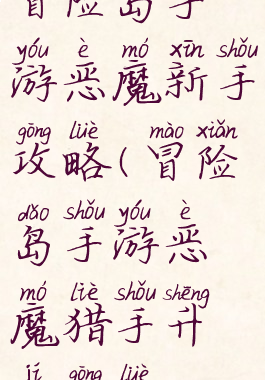 冒险岛手
yóu è mó xīn shǒu
游恶魔新手
gōng lüè mào xiǎn
攻略(冒险
dǎo shǒu yóu è
岛手游恶
mó liè shǒu shēng
魔猎手升
jí gōng lüè